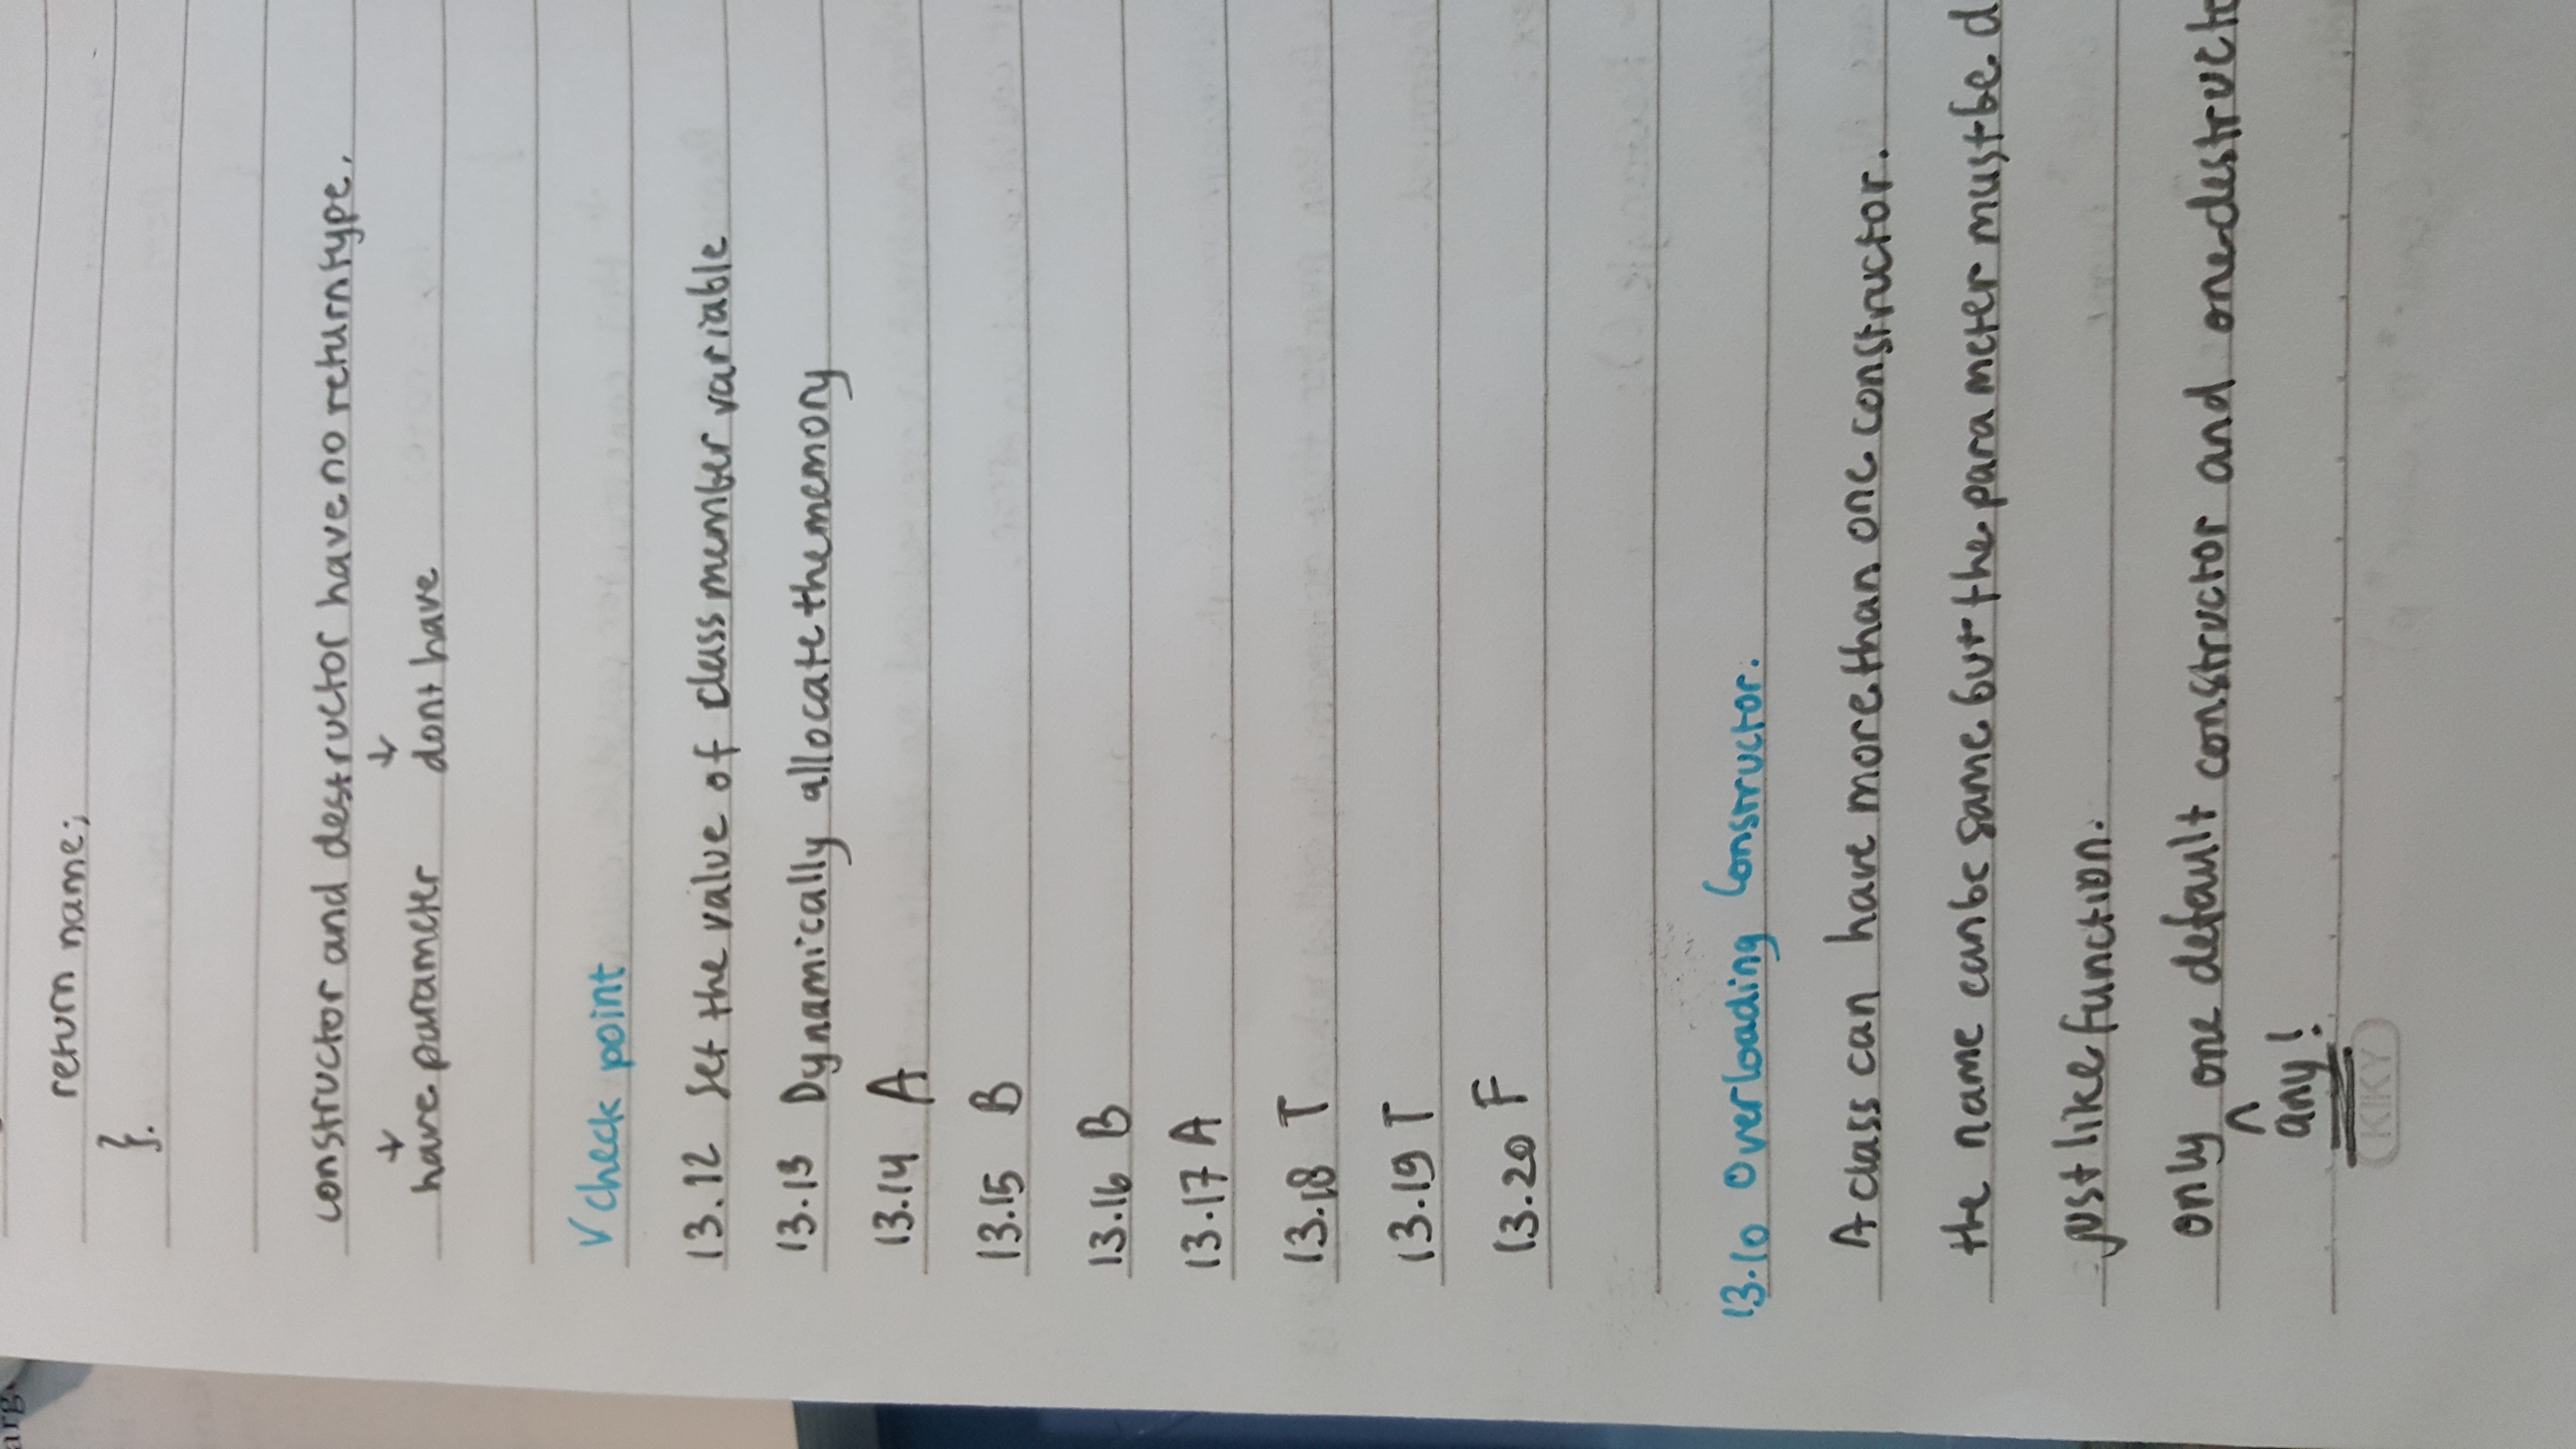 return name;
}.
constructor and destructor have no return type.
↓ ↓
have parameter dont have
√ check point
13.12 Set the value of class member variable
13.13 Dynamically allocate the memory
13.14 A
13.15 B
13.16 B
13.17 A
13.18 T
13.19 T
13.20 F
13.10 Overloading Constructor.
A class can have more than one constructor.
the name can be same but the parameter must be d
just like function.
only one default constructor and one destructo
^
any!
KIKY